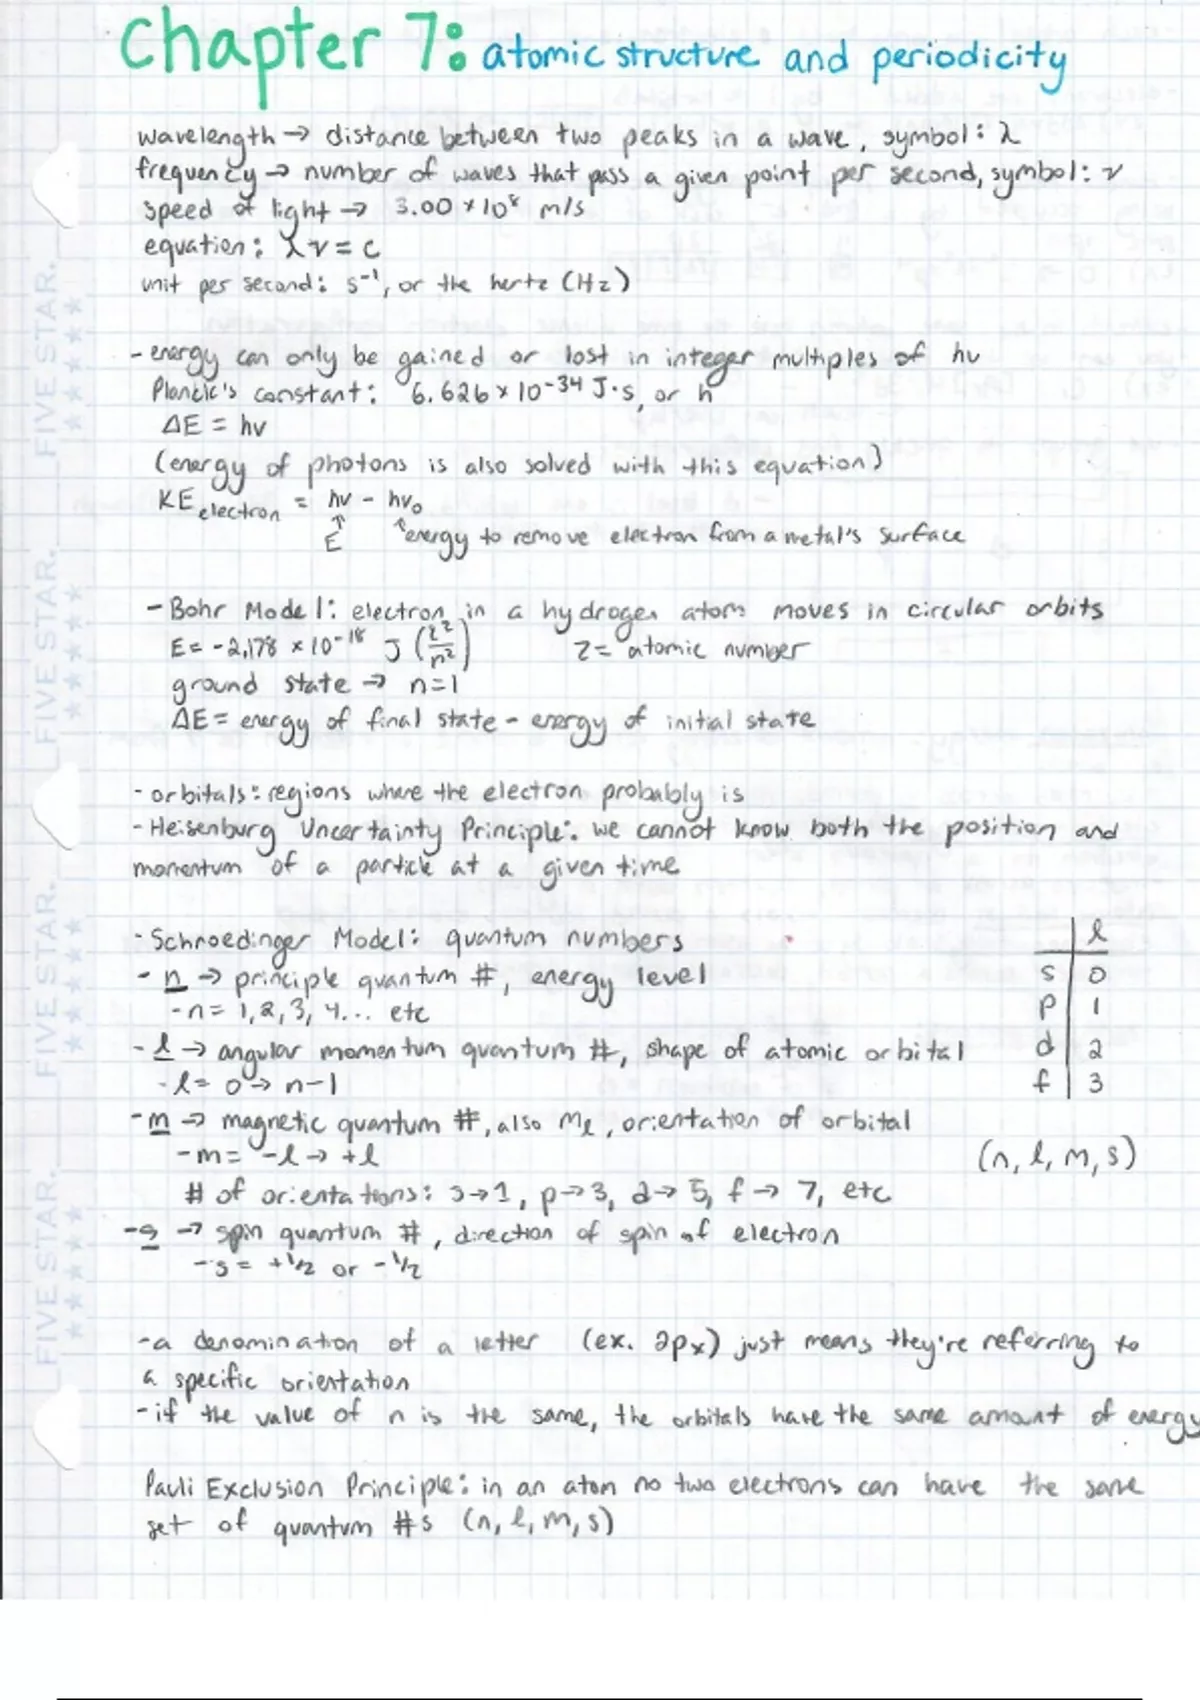 Chapter 7: atomic structure and periodicity
wavelength → distance between two peaks in a wave, symbol: λ
frequency → number of waves that pass a given point per second, symbol: ν
speed of light → 3.00 × 10⁸ m/s
equation: λν = c
unit per second: s⁻¹, or the hertz (Hz)
- energy can only be gained or lost in integer multiples of hν
Planck's constant: 6.626 × 10⁻³⁴ J·s, or h
ΔE = hν
(energy of photons is also solved with this equation)
KE electron = hν - hν₀
↑ E ↑ energy to remove electron from a metal's surface
- Bohr Model: electron in a hydrogen atom moves in circular orbits
E = -2.178 × 10⁻¹⁸ J (Z²/n²) Z = atomic number
ground state → n=1
ΔE = energy of final state - energy of initial state
- orbitals: regions where the electron probably is
- Heisenburg Uncertainty Principle: we cannot know both the position and
momentum of a particle at a given time
- Schroedinger Model: quantum numbers
- n → principle quantum #, energy level
- n = 1, 2, 3, 4... etc
- l → angular momentum quantum #, shape of atomic orbital
- l = 0 → n-1
- m → magnetic quantum #, also mₗ, orientation of orbital
- m = -l → +l
# of orientations: s→1, p→3, d→5, f→7, etc
- s → spin quantum #, direction of spin of electron
- s = +1/2 or -1/2
l
s 0
p 1
d 2
f 3
(n, l, m, s)
- a denomination of a letter (ex. 2pₓ) just means they're referring to
a specific orientation
- if the value of n is the same, the orbitals have the same amount of energy
Pauli Exclusion Principle: in an atom no two electrons can have the same
set of quantum #s (n, l, m, s)
FIVE STAR.
FIVE STAR.
FIVE STAR.
FIVE STAR.